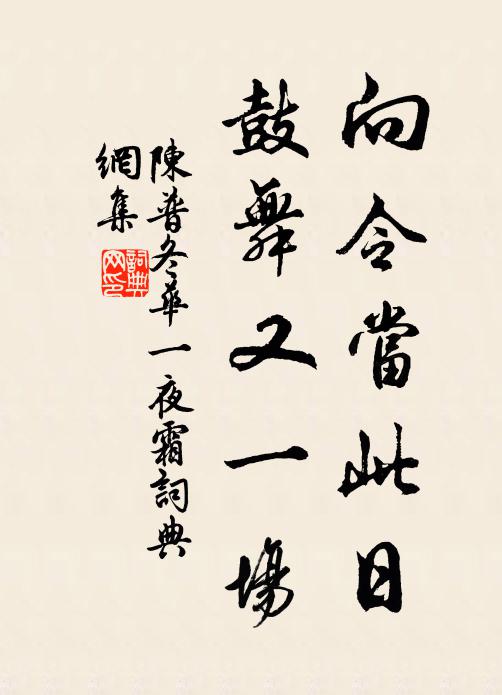 向令當此日
鼓舞又一場
陳普冬華一夜霜詞典
網集
詞典
网印